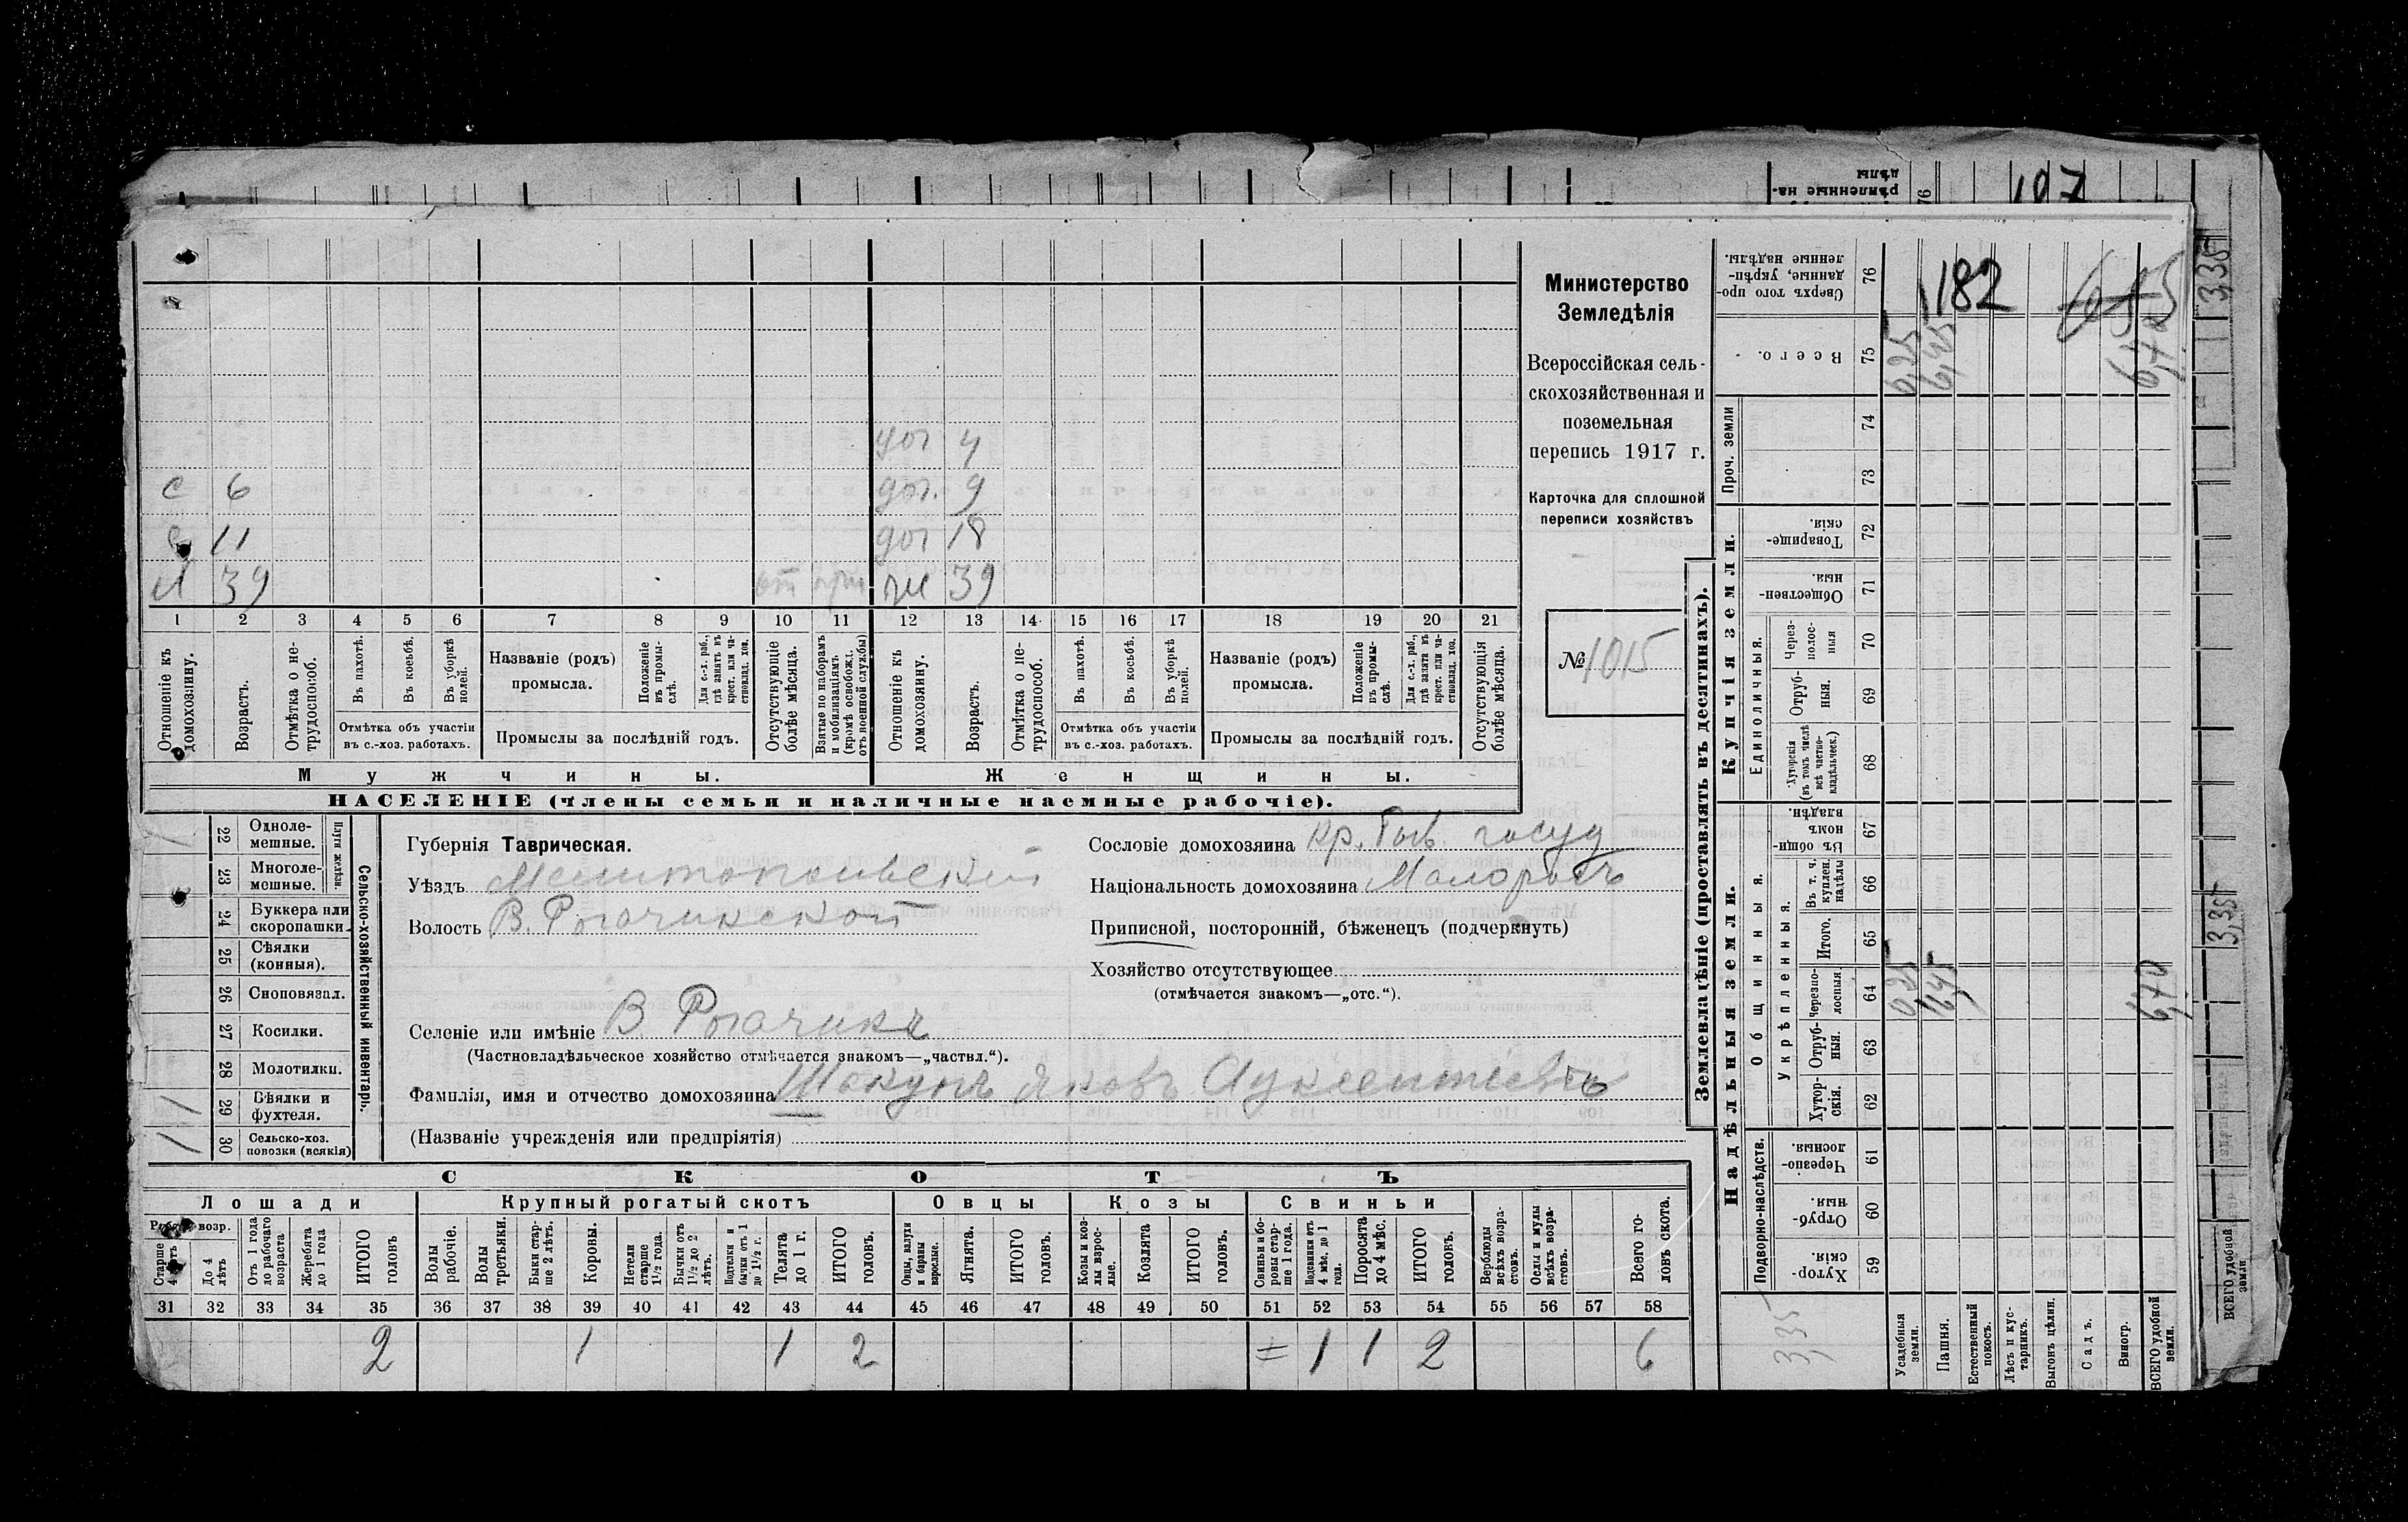 107
Министерство
Земледѣлія
Всероссійская сель-
скохозяйственная и
поземельная
перепись 1917 г.
Карточка для сплошной
переписи хозяйствъ
№ 1015
доч 4
с 6 доч. 9
с 11 доч 18
39 ж 39
1 2 3 4 5 6 7 8 9 10 11 12 13 14 15 16 17 18 19 20 21
Отношеніе къ домохозяину.
Возрастъ.
Отмѣтка о нетрудоспособ.
Въ пахотѣ.
Въ косьбѣ.
Въ уборкѣ полей.
Отмѣтка объ участіи
въ с.-хоз. работахъ.
Названіе (родъ)
промысла.
Положеніе въ промыслѣ.
Для с.-х. раб., гдѣ занятъ въ крест. или частновлад. хоз.
Промыслы за послѣдній годъ.
Отсутствующіе болѣе мѣсяца.
Взятые по наборамъ и мобилизаціямъ (кромѣ освобожд. отъ военной службы)
Отношеніе къ домохозяину.
Возрастъ.
Отмѣтка о нетрудоспособ.
Въ пахотѣ.
Въ косьбѣ.
Въ уборкѣ полей.
Отмѣтка объ участіи
въ с.-хоз. работахъ.
Названіе (родъ)
промысла.
Положеніе въ промыслѣ.
Для с.-х. раб., гдѣ занята въ крест. или частновлад. хоз.
Промыслы за послѣдній годъ.
Отсутствующія болѣе мѣсяца.
Мужчины. Женщины.
НАСЕЛЕНІЕ (члены семьи и наличные наемные рабочіе).
Сельско-хозяйственный инвентарь.
Плуги желѣзн.
22 Одноле-
мешные.
23 Многоле-
мешные.
24 Буккера или
скоропашки.
25 Сѣялки
(конныя).
26 Сноповязал.
27 Косилки.
28 Молотилки.
29 Вѣялки и
фухтеля.
30 Сельско-хоз.
повозки (всякія)
Губернія Таврическая.
Уѣздъ Мелитопольскій
Волость В. Рогачикской
Селеніе или имѣніе В. Рогачикъ
(Частновладѣльческое хозяйство отмѣчается знакомъ—„частвл.“).
Фамилія, имя и отчество домохозяина Шакунъ Яковъ Ауксентіевъ
(Названіе учрежденія или предпріятія)
Сословіе домохозяина кр. быв. госуд
Національность домохозяина Малороссъ
Приписной, посторонній, бѣженецъ (подчеркнуть)
Хозяйство отсутствующее
(отмѣчается знакомъ—„отс.“).
СКОТЪ
Лошади Крупный рогатый скотъ Овцы Козы Свиньи
Рабоч. возр.
Старше 4 лѣтъ
До 4 лѣтъ
Отъ 1 года до рабочаго возраста
Жеребята до 1 года
ИТОГО головъ
Волы рабочіе.
Волы третьяки.
Быки старше 2 лѣтъ.
Коровы.
Нетели старше 1½ года.
Бычки отъ 1½ до 2 лѣтъ.
Подтелки и бычки отъ 1 до 1½ г.
Телята до 1 г.
ИТОГО головъ.
Овцы, валухи и бараны взрослые.
Ягнята.
ИТОГО головъ.
Козы и козлы взрослые.
Козлята
ИТОГО головъ.
Свиньи и боровы старше 1 года.
Подсвинки отъ 4 мѣс. до 1 года.
Поросята до 4 мѣс.
ИТОГО головъ.
Верблюды всѣхъ возрастовъ.
Ослы и мулы всѣхъ возрастовъ.
Всего головъ скота.
31 32 33 34 35 36 37 38 39 40 41 42 43 44 45 46 47 48 49 50 51 52 53 54 55 56 57 58
2 1 1 2 = 1 1 2 6
Землевладѣніе (проставлять въ десятинахъ).
Купчія земли.
Надѣльныя земли.
Сверхъ того проданные, укрѣпленные надѣлы. 76
Всего. 75
Проч. земли 74 73
Товарищескія. 72
Общественныя. 71
Единоличныя.
Черезполосныя 70
Отрубныя. 69
Хуторскія (въ томъ числѣ всѣ частновладѣльческ.) 68
Общинныя.
Въ общинномъ владѣн. 67
Укрѣпленныя.
Въ т. ч. куплен. надѣлы 66
Итого. 65
Черезполосныя 64
Отрубныя. 63
Хуторскія. 62
Подворно-наслѣдств.
Черезполосныя. 61
Отрубныя. 60
Хуторскія. 59
Усадебныя земли.
Пашня.
Естественный покосъ.
Лѣсъ и кустарникъ.
Выгонъ цѣлин.
Садъ.
Виногр.
ВСЕГО удобной земли.
182
3,35
3,35
3,35
ВСЕГО удобной земли